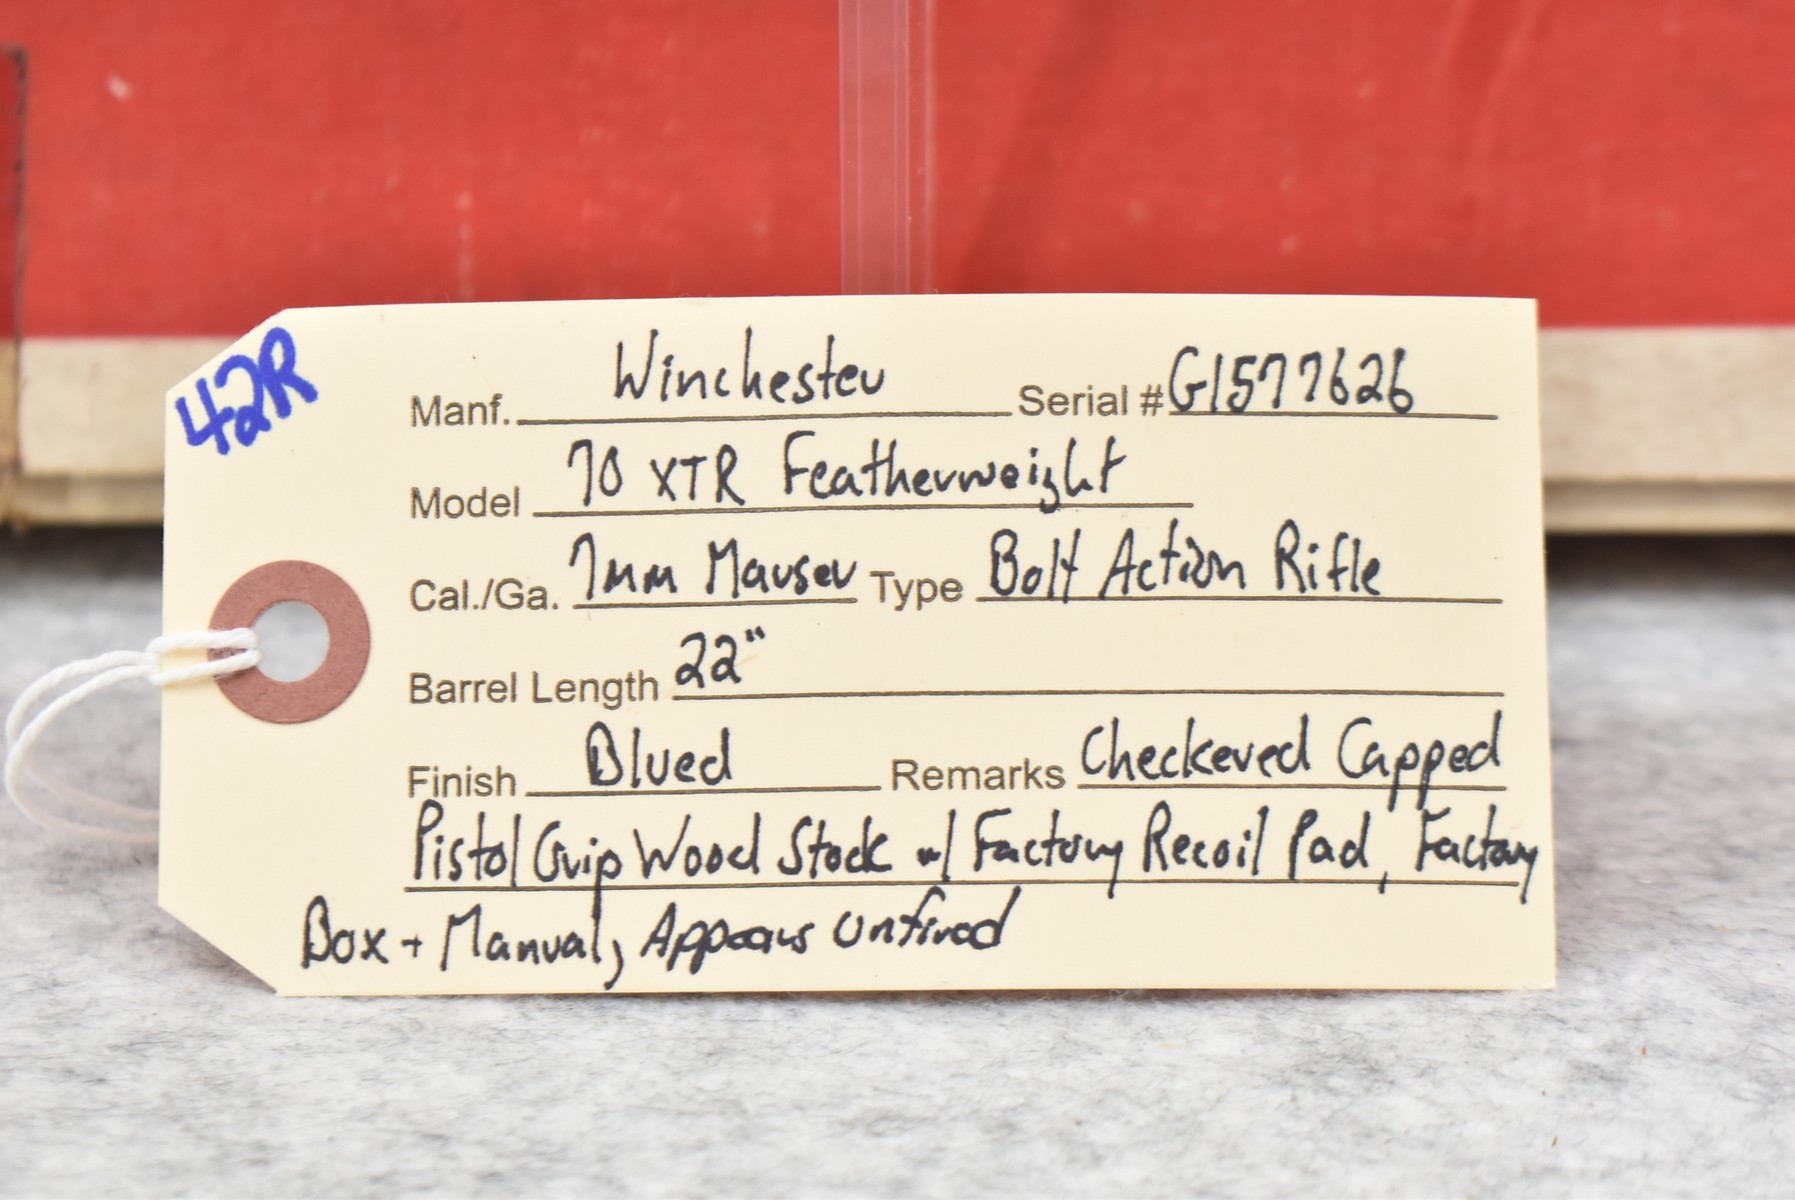 42R
Manf. Winchester Serial # G1577626
Model 70 XTR Featherweight
Cal./Ga. 7mm Mauser Type Bolt Action Rifle
Barrel Length 22"
Finish Blued Remarks Checkered Capped
Pistol Grip Wood Stock w/ Factory Recoil Pad, Factory
Box + Manual, Appears Unfired